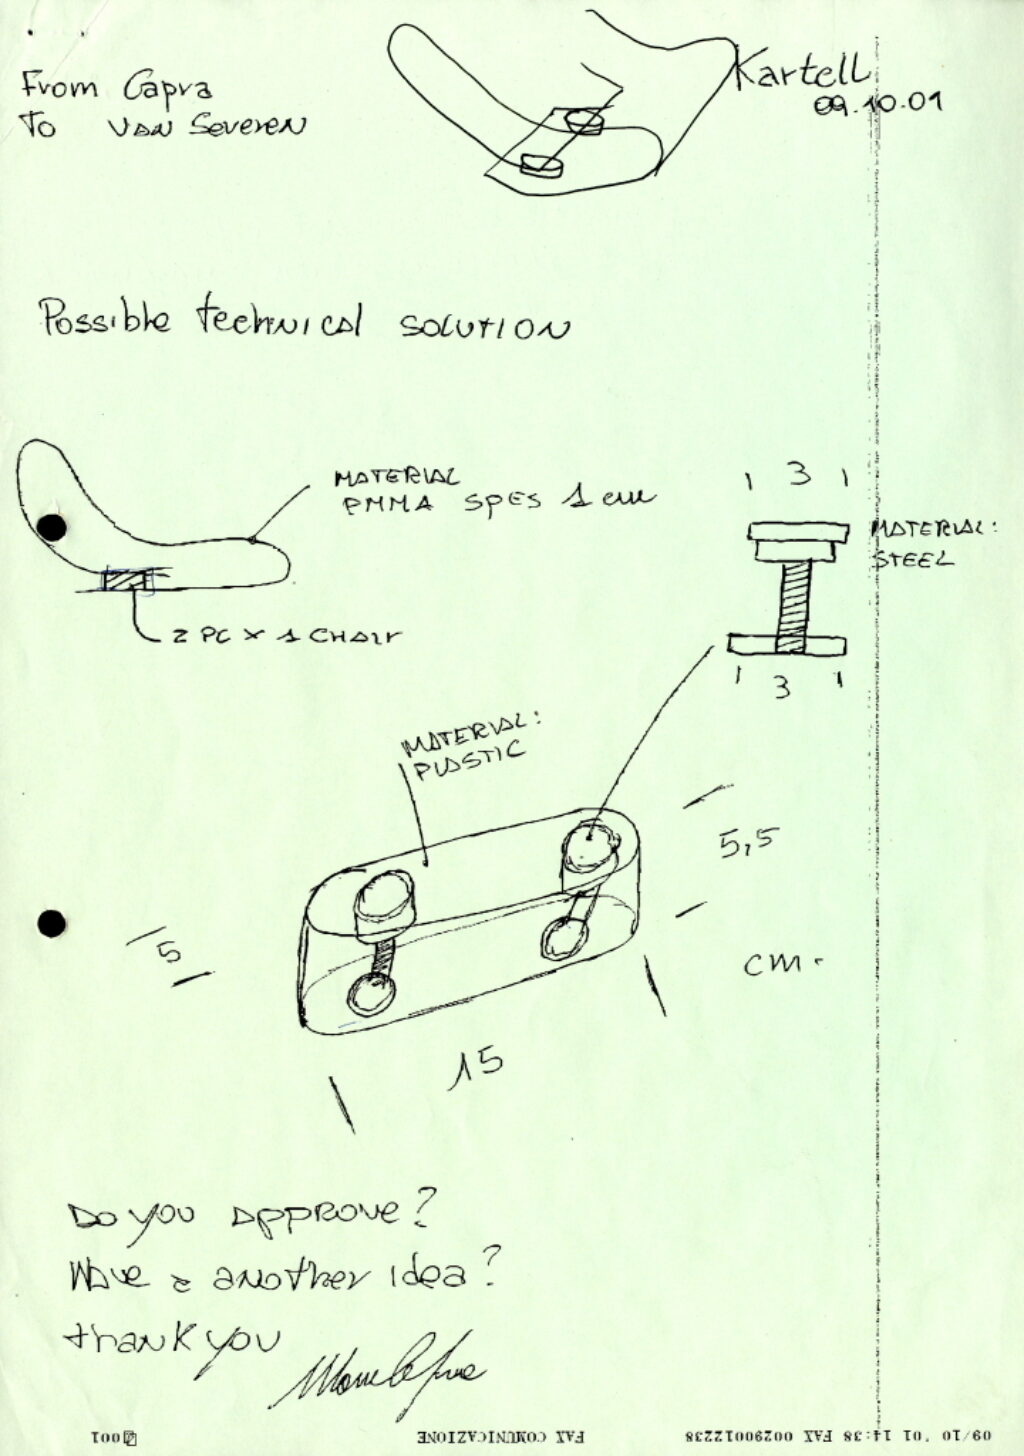 From Capra
To Van Severen
Kartell
09.10.01
Possible technical solution
MATERIAL
PMMA SPES 1 cm
2 PC x 1 CHAIR
1 3 1
MATERIAL:
STEEL
1 3 1
MATERIAL:
PLASTIC
5,5
5
cm.
15
Do you approve?
Have a another idea?
thank you
09/10 '01 14:38 FAX 00290012238
FAX COMUNICAZIONE
001